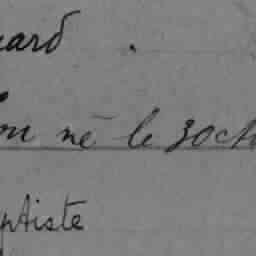 ard
on né le 30 oct
ptiste